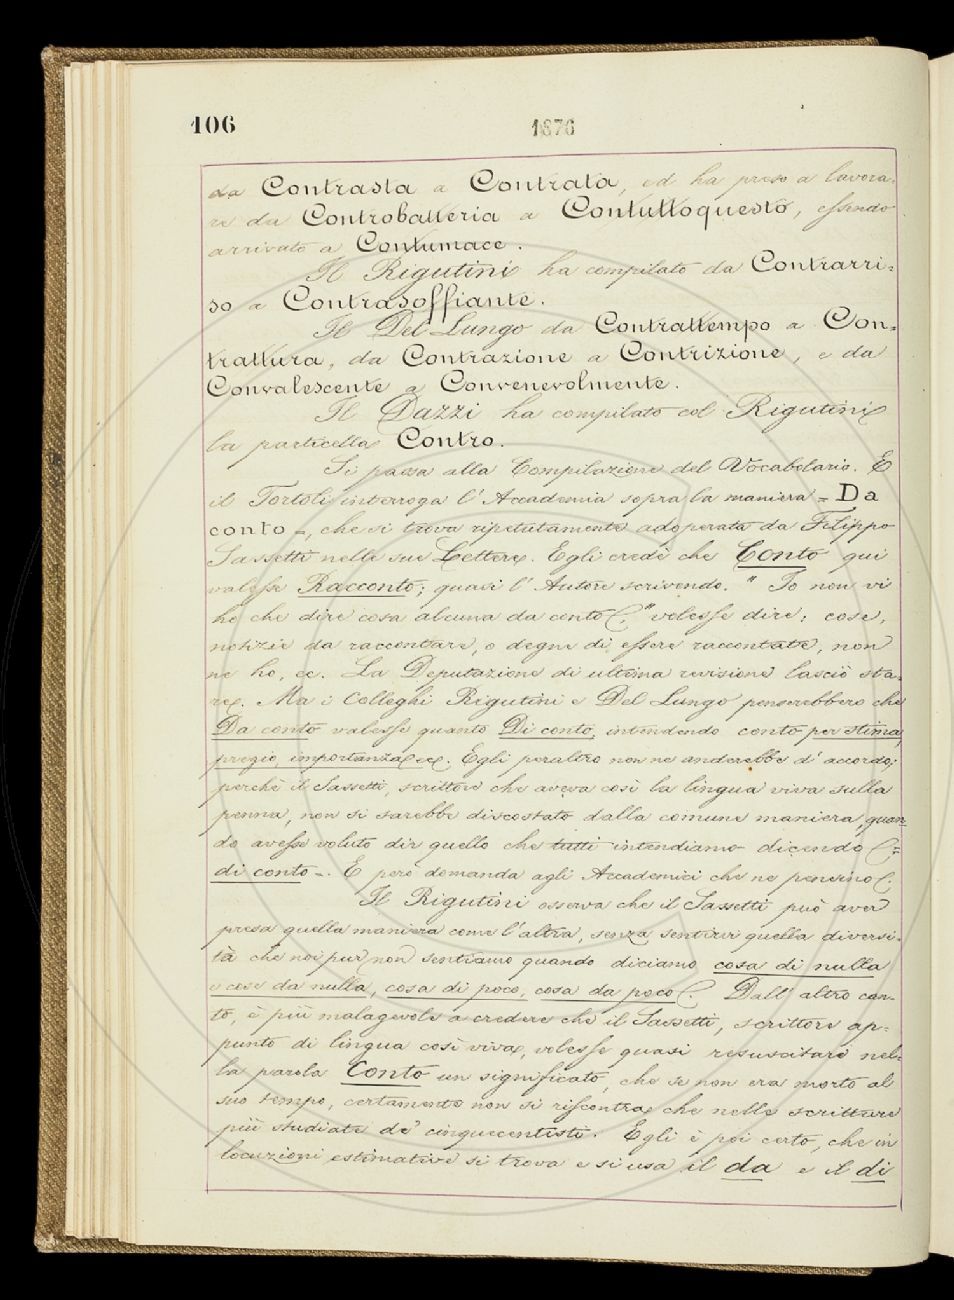 106
1876
da Contrasta a Contrata, ed ha preso a lavora-
re da Controbatteria a Contuttoquesto, essendo
arrivato a Contumace.
Il Rigutini ha compilato da Contrarri-
so a Contrasoffiante.
Il Del Lungo da Contrattempo a Con-
trattura, da Contrazione a Contrizione, e da
Convalescente a Convenevolmente.
Il Dazzi ha compilato col Rigutini
la particella Contro.
Si passa alla Compilazione del Vocabolario. E
il Tortoli interroga l'Accademia sopra la maniera = Da
conto =, che si trova ripetutamente adoperata da Filippo
Sassetti nelle sue Lettere. Egli credè che Conto qui
valesse Racconto; quasi l'Autore scrivendo. " Io non vi
ho che dire cosa alcuna da conto ", volesse dire; cose,
notizie da raccontare, o degne di essere raccontate, non
ne ho, ec. La Deputazione di ultima revisione lasciò sta-
re. Ma i Colleghi Rigutini e Del Lungo penserebbero che
Da conto valesse quanto Di conto, intendendo conto per stima,
pregio, importanza ec. Egli peraltro non ne anderebbe d'accordo;
perchè il Sassetti, scrittore che aveva così la lingua viva sulla
penna, non si sarebbe discostato dalla comune maniera, quan-
do avesse voluto dir quello che tutti intendiamo dicendo =
di conto =. E però domanda agli Accademici che ne pensino.
Il Rigutini osserva che il Sassetti può aver
presa quella maniera come l'altra, senza sentirvi quella diversi-
tà che noi pur non sentiamo quando diciamo cosa di nulla
e cose da nulla, cosa di poco, cosa da poco. Dall'altro can-
to, è più malagevole a credere che il Sassetti, scrittore ap-
punto di lingua così viva, volesse quasi resuscitare nel-
la parola Conto un significato, che se non era morto al
suo tempo, certamente non si riscontra che nelle scritture
più studiate de' cinquecentisti. Egli è poi certo, che in
locuzioni estimative si trova e si usa il da e il di